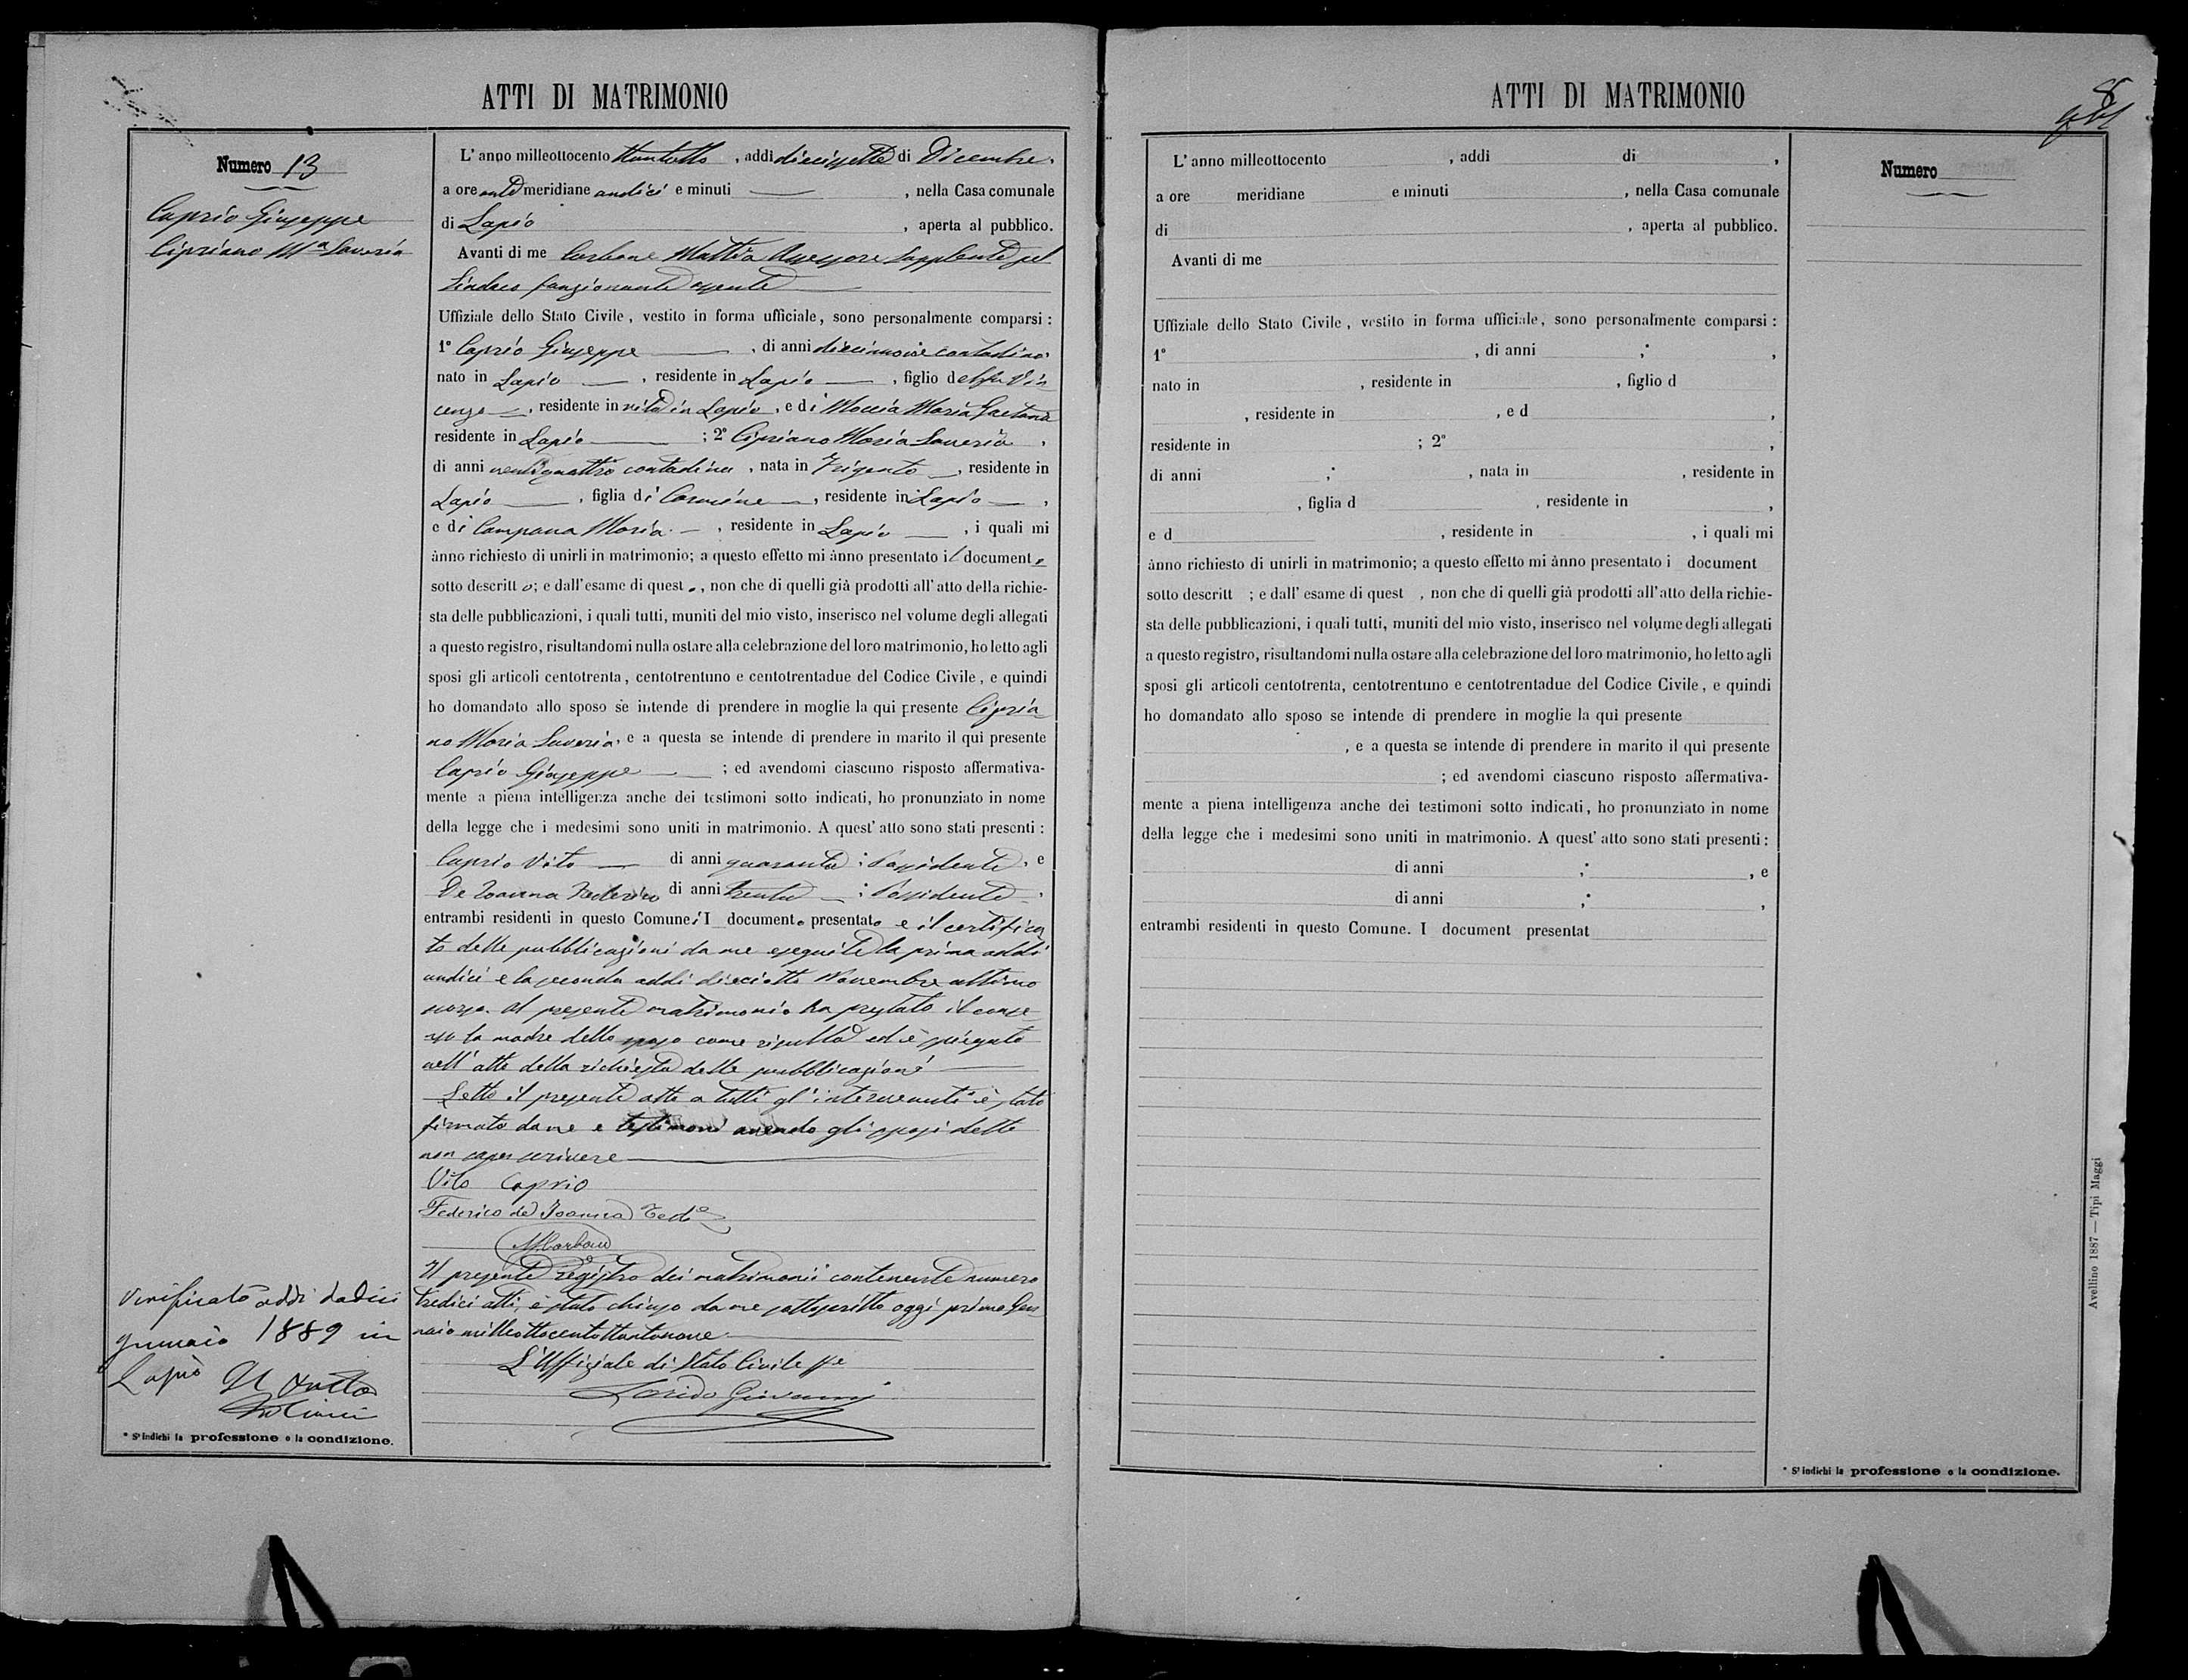 ATTI DI MATRIMONIO
Numero 13
Caprio Giuseppe
Cipriano Mª Saveria
L'anno milleottocento ttantotto, addì diecissette di Dicembre,
a ore ante meridiane undici e minuti, nella Casa comunale
di Lapio, aperta al pubblico.
Avanti di me Carbone Mattia Assessore Supplente pel
Sindaco funzionante assente
Uffiziale dello Stato Civile, vestito in forma ufficiale, sono personalmente comparsi:
1º Caprio Giuseppe, di anni diecinnove contadino,
nato in Lapio, residente in Lapio, figlio del fu Vin
cenzo, residente in vita in Lapio, e di Moccia Maria Gaetana
residente in Lapio; 2º Cipriano Maria Saveria,
di anni ventiquattro contadina, nata in Frigento, residente in
Lapio, figlia di Carmine, residente in Lapio,
e di Campana Maria, residente in Lapio, i quali mi
ànno richiesto di unirli in matrimonio; a questo effetto mi ànno presentato il documento
sotto descritto; e dall'esame di questo, non che di quelli già prodotti all'atto della richie-
sta delle pubblicazioni, i quali tutti, muniti del mio visto, inserisco nel volume degli allegati
a questo registro, risultandomi nulla ostare alla celebrazione del loro matrimonio, ho letto agli
sposi gli articoli centotrenta, centotrentuno e centotrentadue del Codice Civile, e quindi
ho domandato allo sposo se intende di prendere in moglie la qui presente Cipria
no Maria Saveria, e a questa se intende di prendere in marito il qui presente
Caprio Giuseppe; ed avendomi ciascuno risposto affermativa-
mente a piena intelligenza anche dei testimoni sotto indicati, ho pronunziato in nome
della legge che i medesimi sono uniti in matrimonio. A quest'atto sono stati presenti:
Caprio Vito di anni quaranta; Possidente, e
De Joanna Federico di anni trenta; Possidente,
entrambi residenti in questo Comune. Il documento presentato e il certifica
to delle pubblicazioni da me eseguite la prima addì
undici e la seconda addì dieciotto Novembre ultimo
scorso. Al presente matrimonio ha prestato il conse
nso la madre dello sposo come risulta ed è spiegato
nell'atto della richiesta delle pubblicazioni
Letto il presente atto a tutti gl'intervenuti è stato
firmato da me e testimoni avendo gli sposi detto
non saper scrivere
Vito Caprio
Federico de Joanna Testº
M Carbone
Il presente registro dei matrimonii contenente numero
tredici atti, è stato chiuso da me sottoscritto oggi primo Gen
naio milleottocentottantanove
L'Uffiziale di Stato Civile ff
Giovanni
Verificato addì dodici
gennaio 1889 in
Lapio Il
* Si indichi la professione o la condizione.
ATTI DI MATRIMONIO
8
Numero
L'anno milleottocento, addì di,
a ore meridiane e minuti, nella Casa comunale
di, aperta al pubblico.
Avanti di me
Uffiziale dello Stato Civile, vestito in forma ufficiale, sono personalmente comparsi:
1º, di anni;,
nato in, residente in, figlio d
, residente in, e d,
residente in; 2º,
di anni;, nata in, residente in
, figlia d, residente in,
e d, residente in, i quali mi
ànno richiesto di unirli in matrimonio; a questo effetto mi ànno presentato i document
sotto descritt; e dall'esame di quest, non che di quelli già prodotti all'atto della richie-
sta delle pubblicazioni, i quali tutti, muniti del mio visto, inserisco nel volume degli allegati
a questo registro, risultandomi nulla ostare alla celebrazione del loro matrimonio, ho letto agli
sposi gli articoli centotrenta, centotrentuno e centotrentadue del Codice Civile, e quindi
ho domandato allo sposo se intende di prendere in moglie la qui presente
, e a questa se intende di prendere in marito il qui presente
; ed avendomi ciascuno risposto affermativa-
mente a piena intelligenza anche dei testimoni sotto indicati, ho pronunziato in nome
della legge che i medesimi sono uniti in matrimonio. A quest'atto sono stati presenti:
di anni;, e
di anni;,
entrambi residenti in questo Comune. I document presentat
* Si indichi la professione o la condizione.
Avellino 1887 — Tipi Maggi